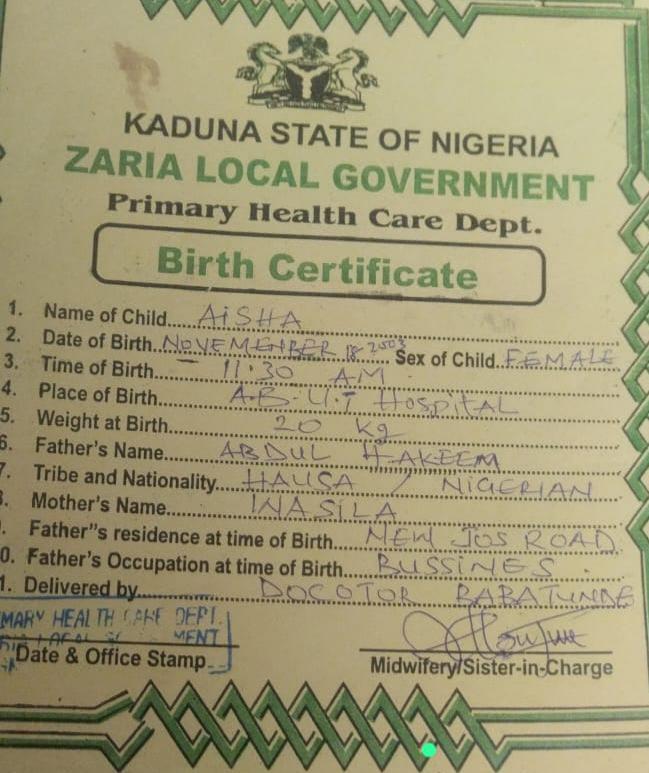 KADUNA STATE OF NIGERIA
ZARIA LOCAL GOVERNMENT
Primary Health Care Dept.
Birth Certificate
1. Name of Child AiSHA
2. Date of Birth NOVEMEMBER 18 2003 Sex of Child FEMALE
3. Time of Birth 11:30 AM
4. Place of Birth A.B.U.T HOSPITAL
5. Weight at Birth 20 kg
6. Father's Name ABDUL HAKEEM
7. Tribe and Nationality HAUSA / NIGERIAN
Mother's Name WASILA
Father"s residence at time of Birth NEW JOS ROAD
0. Father's Occupation at time of Birth BUSSINES.
1. Delivered by DOCOTOR BABATUNDE
MARY HEALTH CARE DEPT.
MENT
Date & Office Stamp
Midwifery/Sister-in-Charge